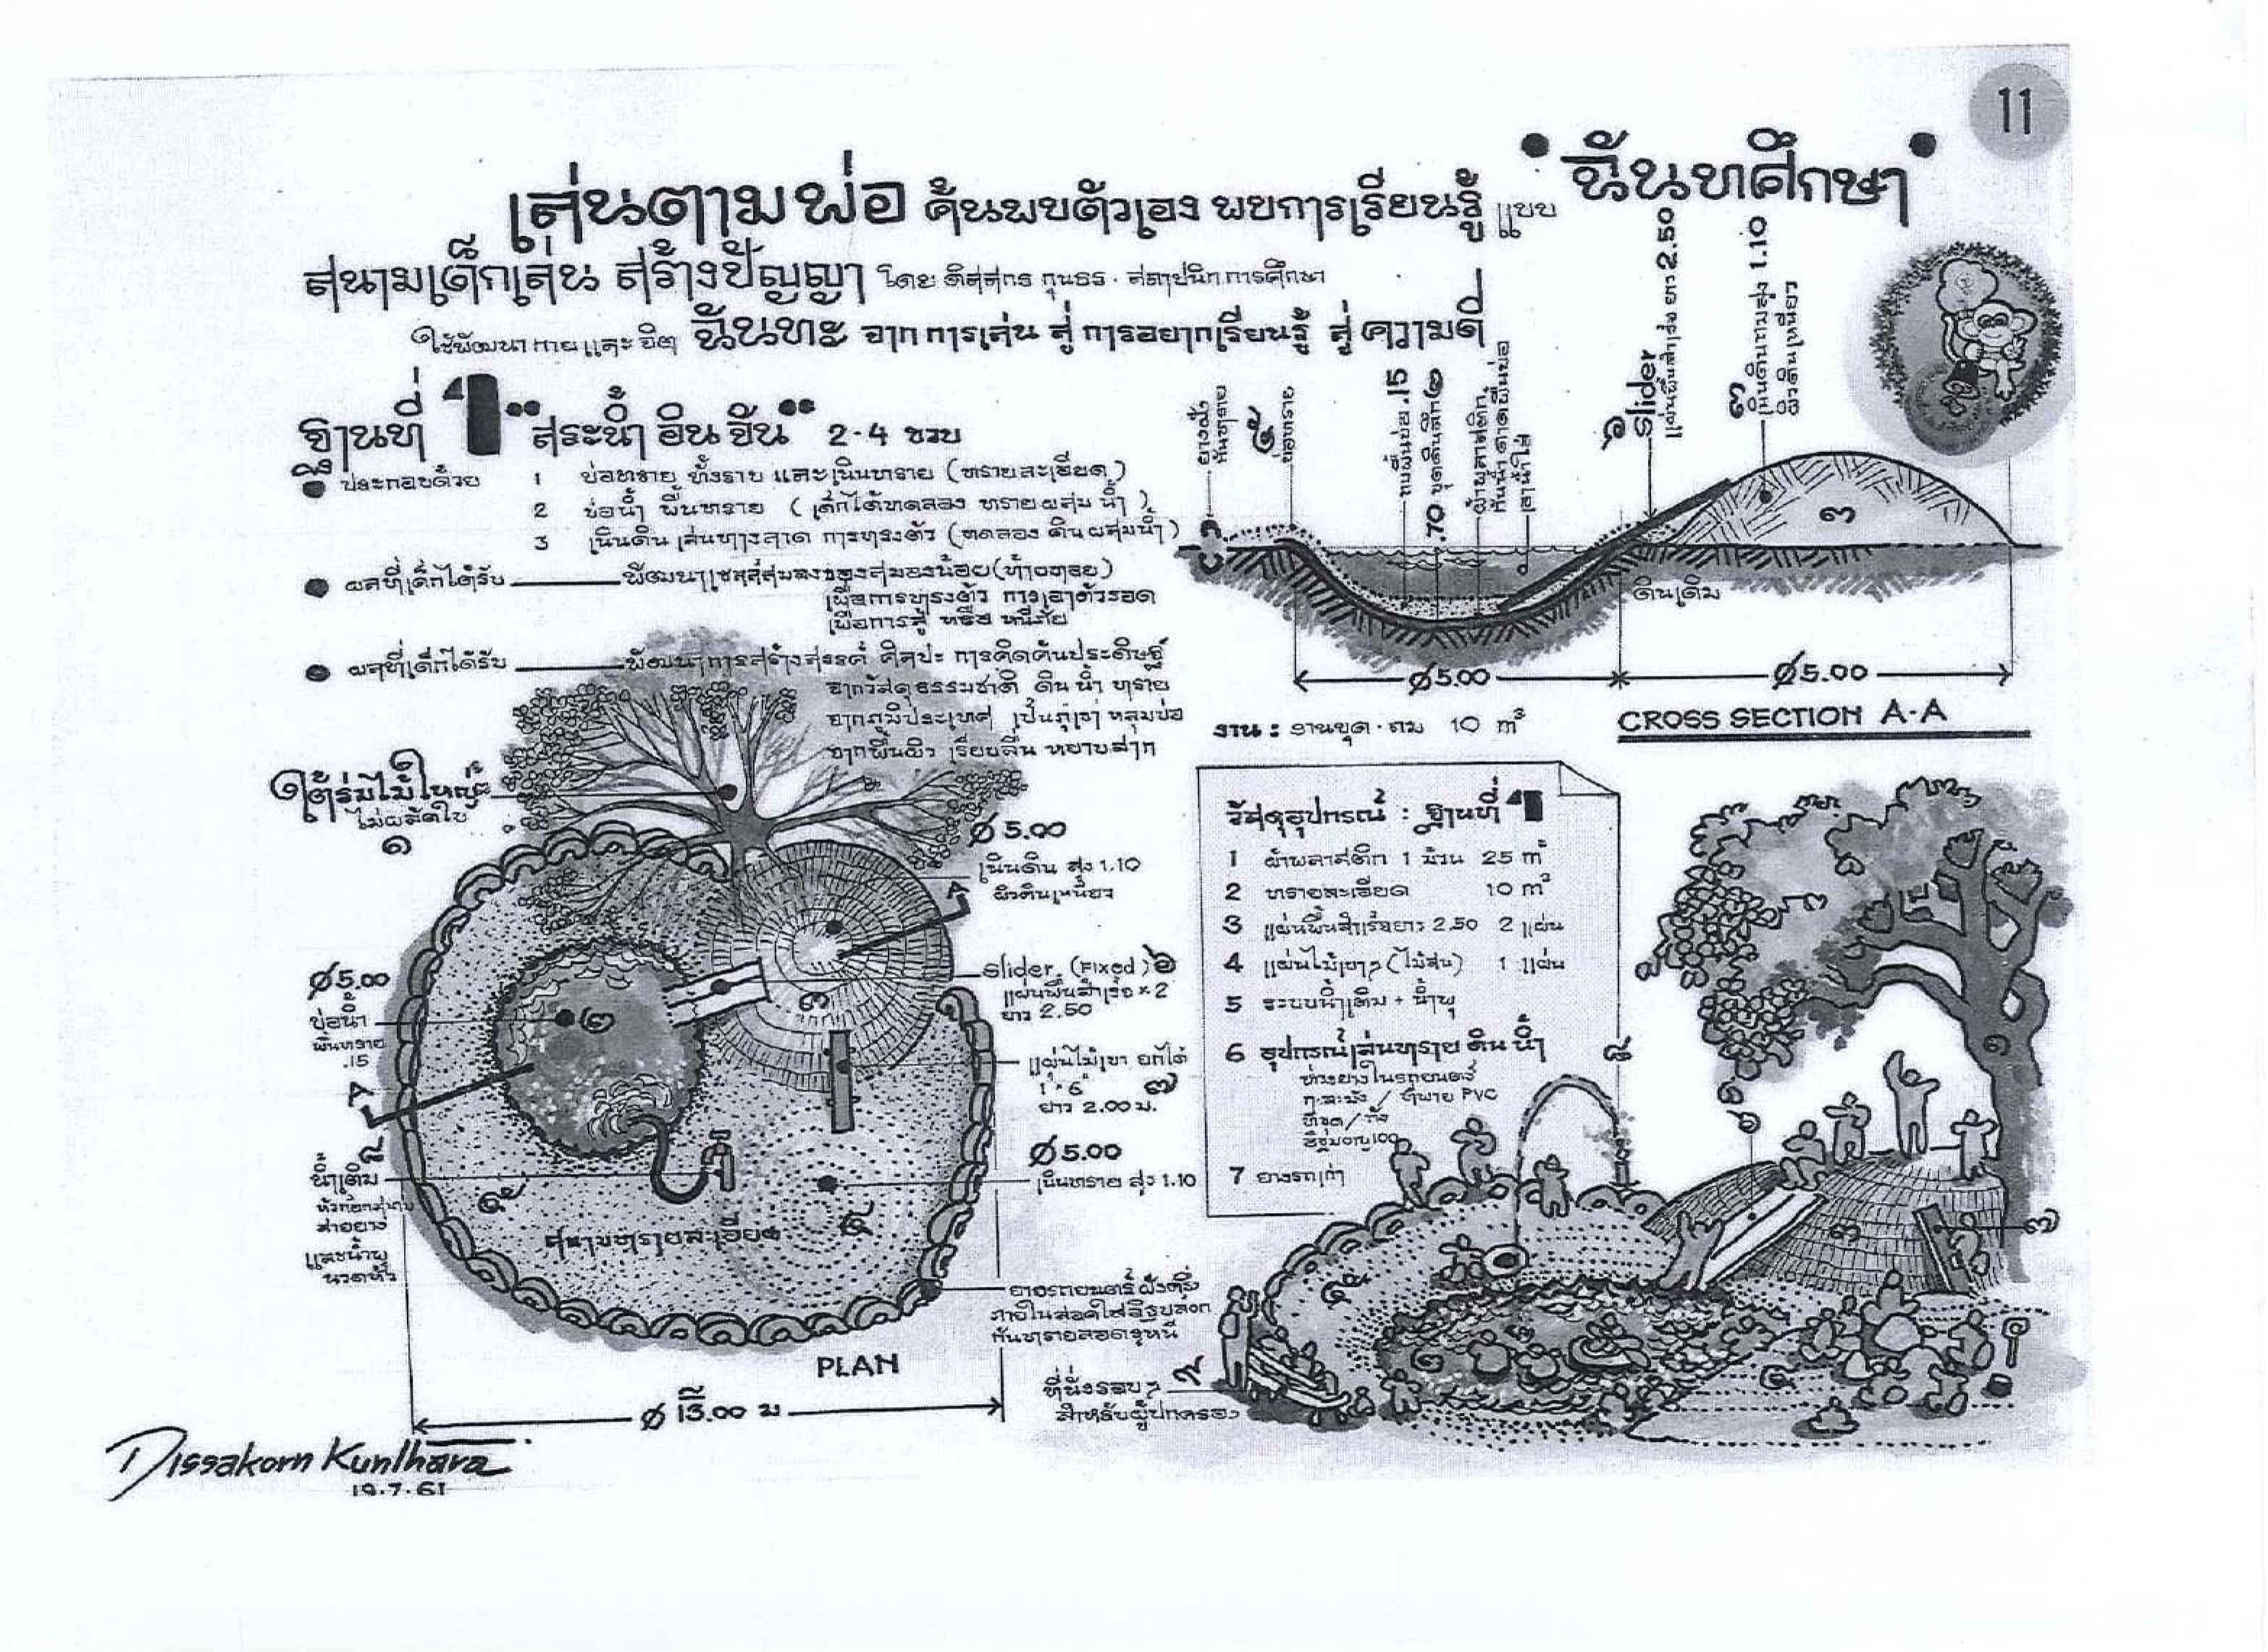 11
เล่นตามพ่อ ค้นพบตัวเอง พบการเรียนรู้ แบบ "ฉันทศึกษา"
สนามเด็กเล่น สร้างปัญญา โดย ดิสสกร กุนธร · สถาปนิกการศึกษา
ใช้พัฒนากายและจิต ฉันทะ จากการเล่น สู่การอยากเรียนรู้ สู่ความดี
ฐานที่ 1 "สระน้ำ อินจัน" 2-4 ขวบ
ประกอบด้วย 1 บ่อทราย ทั้งราบ และเนินทราย (ทรายละเอียด)
2 บ่อน้ำ พื้นทราย (เด็กได้ทดลอง ทรายผสมน้ำ)
3 เนินดิน เล่นทางลาด การทรงตัว (ทดลอง ดินผสมน้ำ)
ผลที่เด็กได้รับ พัฒนาเซลล์สมองของสมองน้อย (ท้ายทอย)
เพื่อการทรงตัว การเอาตัวรอด
เพื่อการสู้ หรือ หนีภัย
ผลที่เด็กได้รับ พัฒนาการสร้างสรรค์ ศิลปะ การคิดค้นประดิษฐ์
จากวัสดุธรรมชาติ ดิน น้ำ ทราย
จากภูมิประเทศ เป็นภูเขา หลุมบ่อ
จากพื้นผิว เรียบลื่น หยาบสาก
ยางฝัง
กันทราย
๕
บ่อทราย
ทบพื้นบ่อ .15
.70 ขุดดินลึก ๒
ผ้าพลาสติก
กันน้ำ ดาดพื้นบ่อ
เอาน้ำใส่
๖ Slider
แผ่นพื้นสำเร็จ ยาว 2.50
๓ เนินดินถมสูง 1.10
ผิวดินเหนียว
๓
ดินเดิม
Ø5.00
Ø5.00
งาน : งานขุด · ถม 10 m³
CROSS SECTION A-A
ใต้ร่มไม้ใหญ่
ไม่ผลัดใบ
๑
Ø 5.00
เนินดิน สูง 1.10
ผิวดินเหนียว
A
Slider (Fixed) ๖
แผ่นพื้นสำเร็จ × 2
ยาว 2.50
Ø5.00
บ่อน้ำ
พื้นทราย
.15
A
๒
๓
แผ่นไม้เบา ยกได้
1" 6" ๗
ยาว 2.00 ม.
Ø5.00
เนินทราย สูง 1.10
๘
น้ำเติม
และน้ำพุ
๕
๔
สนามทรายละเอียด
ยางรถยนต์ฝังครึ่ง
PLAN
Ø 13.00 ม
วัสดุอุปกรณ์ : ฐานที่ 1
1 ผ้าพลาสติก 1 ม้วน 25 m²
2 ทรายละเอียด 10 m³
3 แผ่นพื้นสำเร็จยาว 2.50 2 แผ่น
4 แผ่นไม้เบาๆ (ไม้สน) 1 แผ่น
5 ระบบน้ำเติม + น้ำพุ
6 อุปกรณ์เล่นทราย ดิน น้ำ
ห่วงยางในรถยนต์
กะละมัง / ไม้พาย PVC
ที่ขุด / ถัง
7 ยางรถเก่า
๘
๑
๖
๓
๗
๕
๒
๔
ที่นั่งรอบๆ ๙
สำหรับผู้ปกครอง
Dissakorn Kunthara
19.7.61